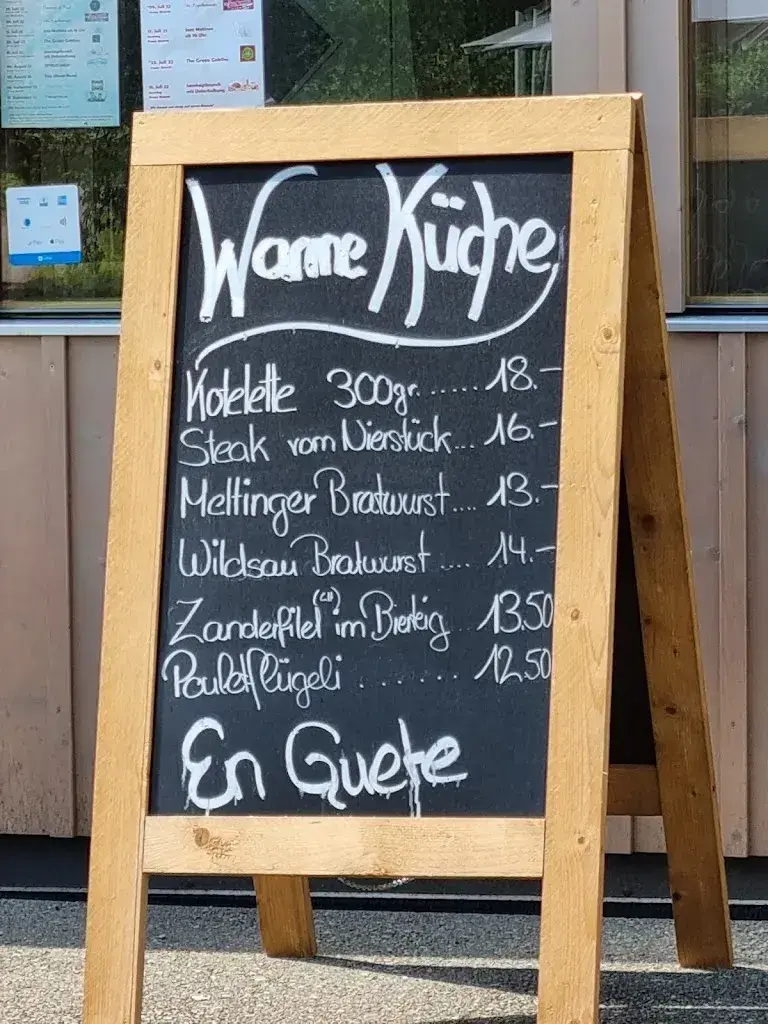 Warme Küche
Kotelette 300gr. ..... 18.-
Steak vom Nierstück... 16.-
Meltinger Bratwurst.... 13.-
Wildsau Bratwurst .... 14.-
Zanderfilet (CH) im Bierteig .. 13.50
Pouletflügeli ....... 12.50
En Guete
The Green Socks